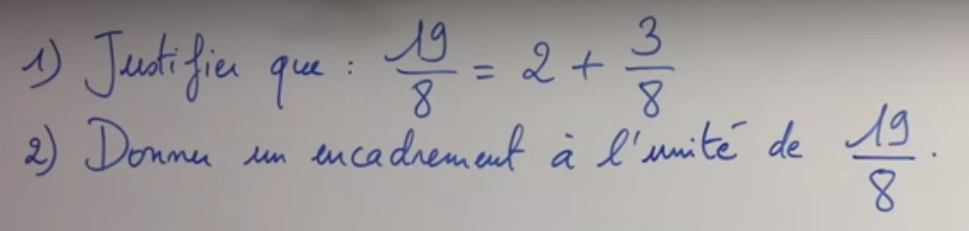 1) Justifier que : 19/8 = 2 + 3/8
2) Donner un encadrement à l'unité de 19/8.